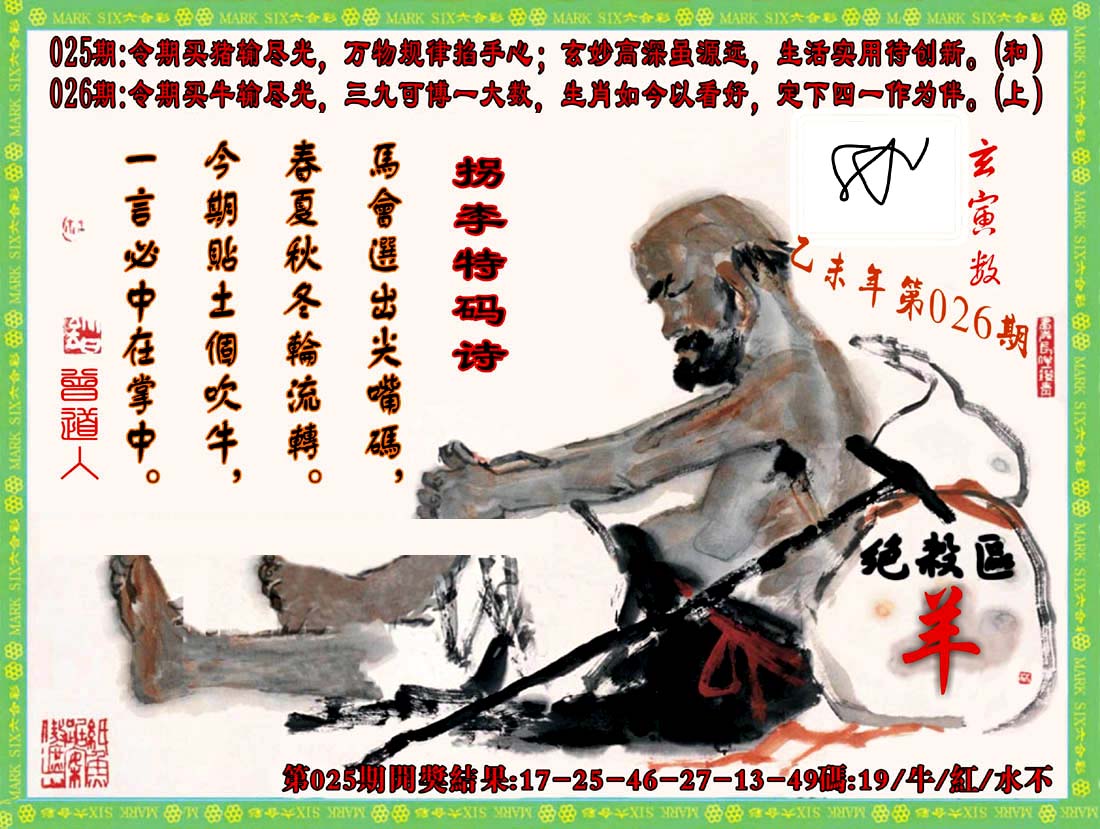 MARK SIX六合彩
025期:令期买猪输尽光，万物规律掐手心；玄妙高深虽源远，生活实用待创新。(和)
026期:令期买牛输尽光，三九可博一大数，生肖如今以看好，定下四一作为伴。(上)
玄寅数
乙未年第026期
拐李特码诗
馬會選出尖嘴碼，
春夏秋冬輪流轉。
今期貼土個吹牛，
一言必中在掌中。
曾道人
绝殺區
羊
第025期開獎結果:17-25-46-27-13-49碼:19/牛/紅/水不